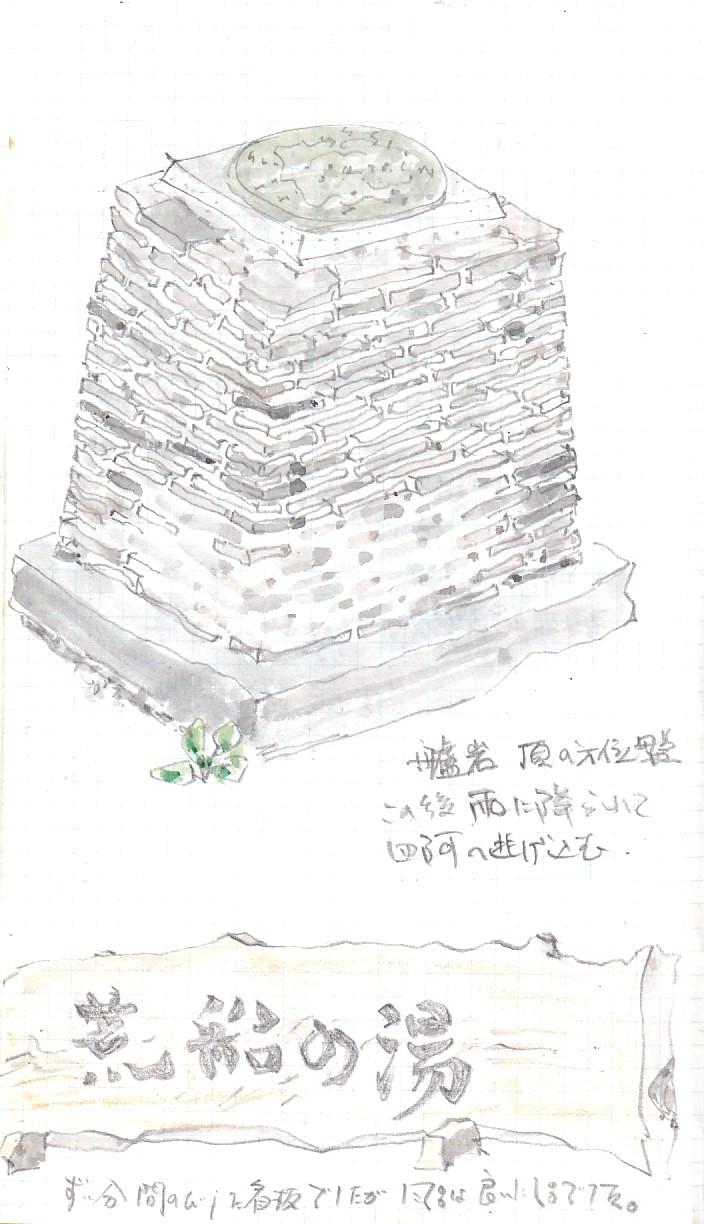 艫岩 頂の方位盤
この後 雨に降られて
四阿へ逃げ込む.
荒船の湯
ずい分 間のびした看板でしたが は良い でした。